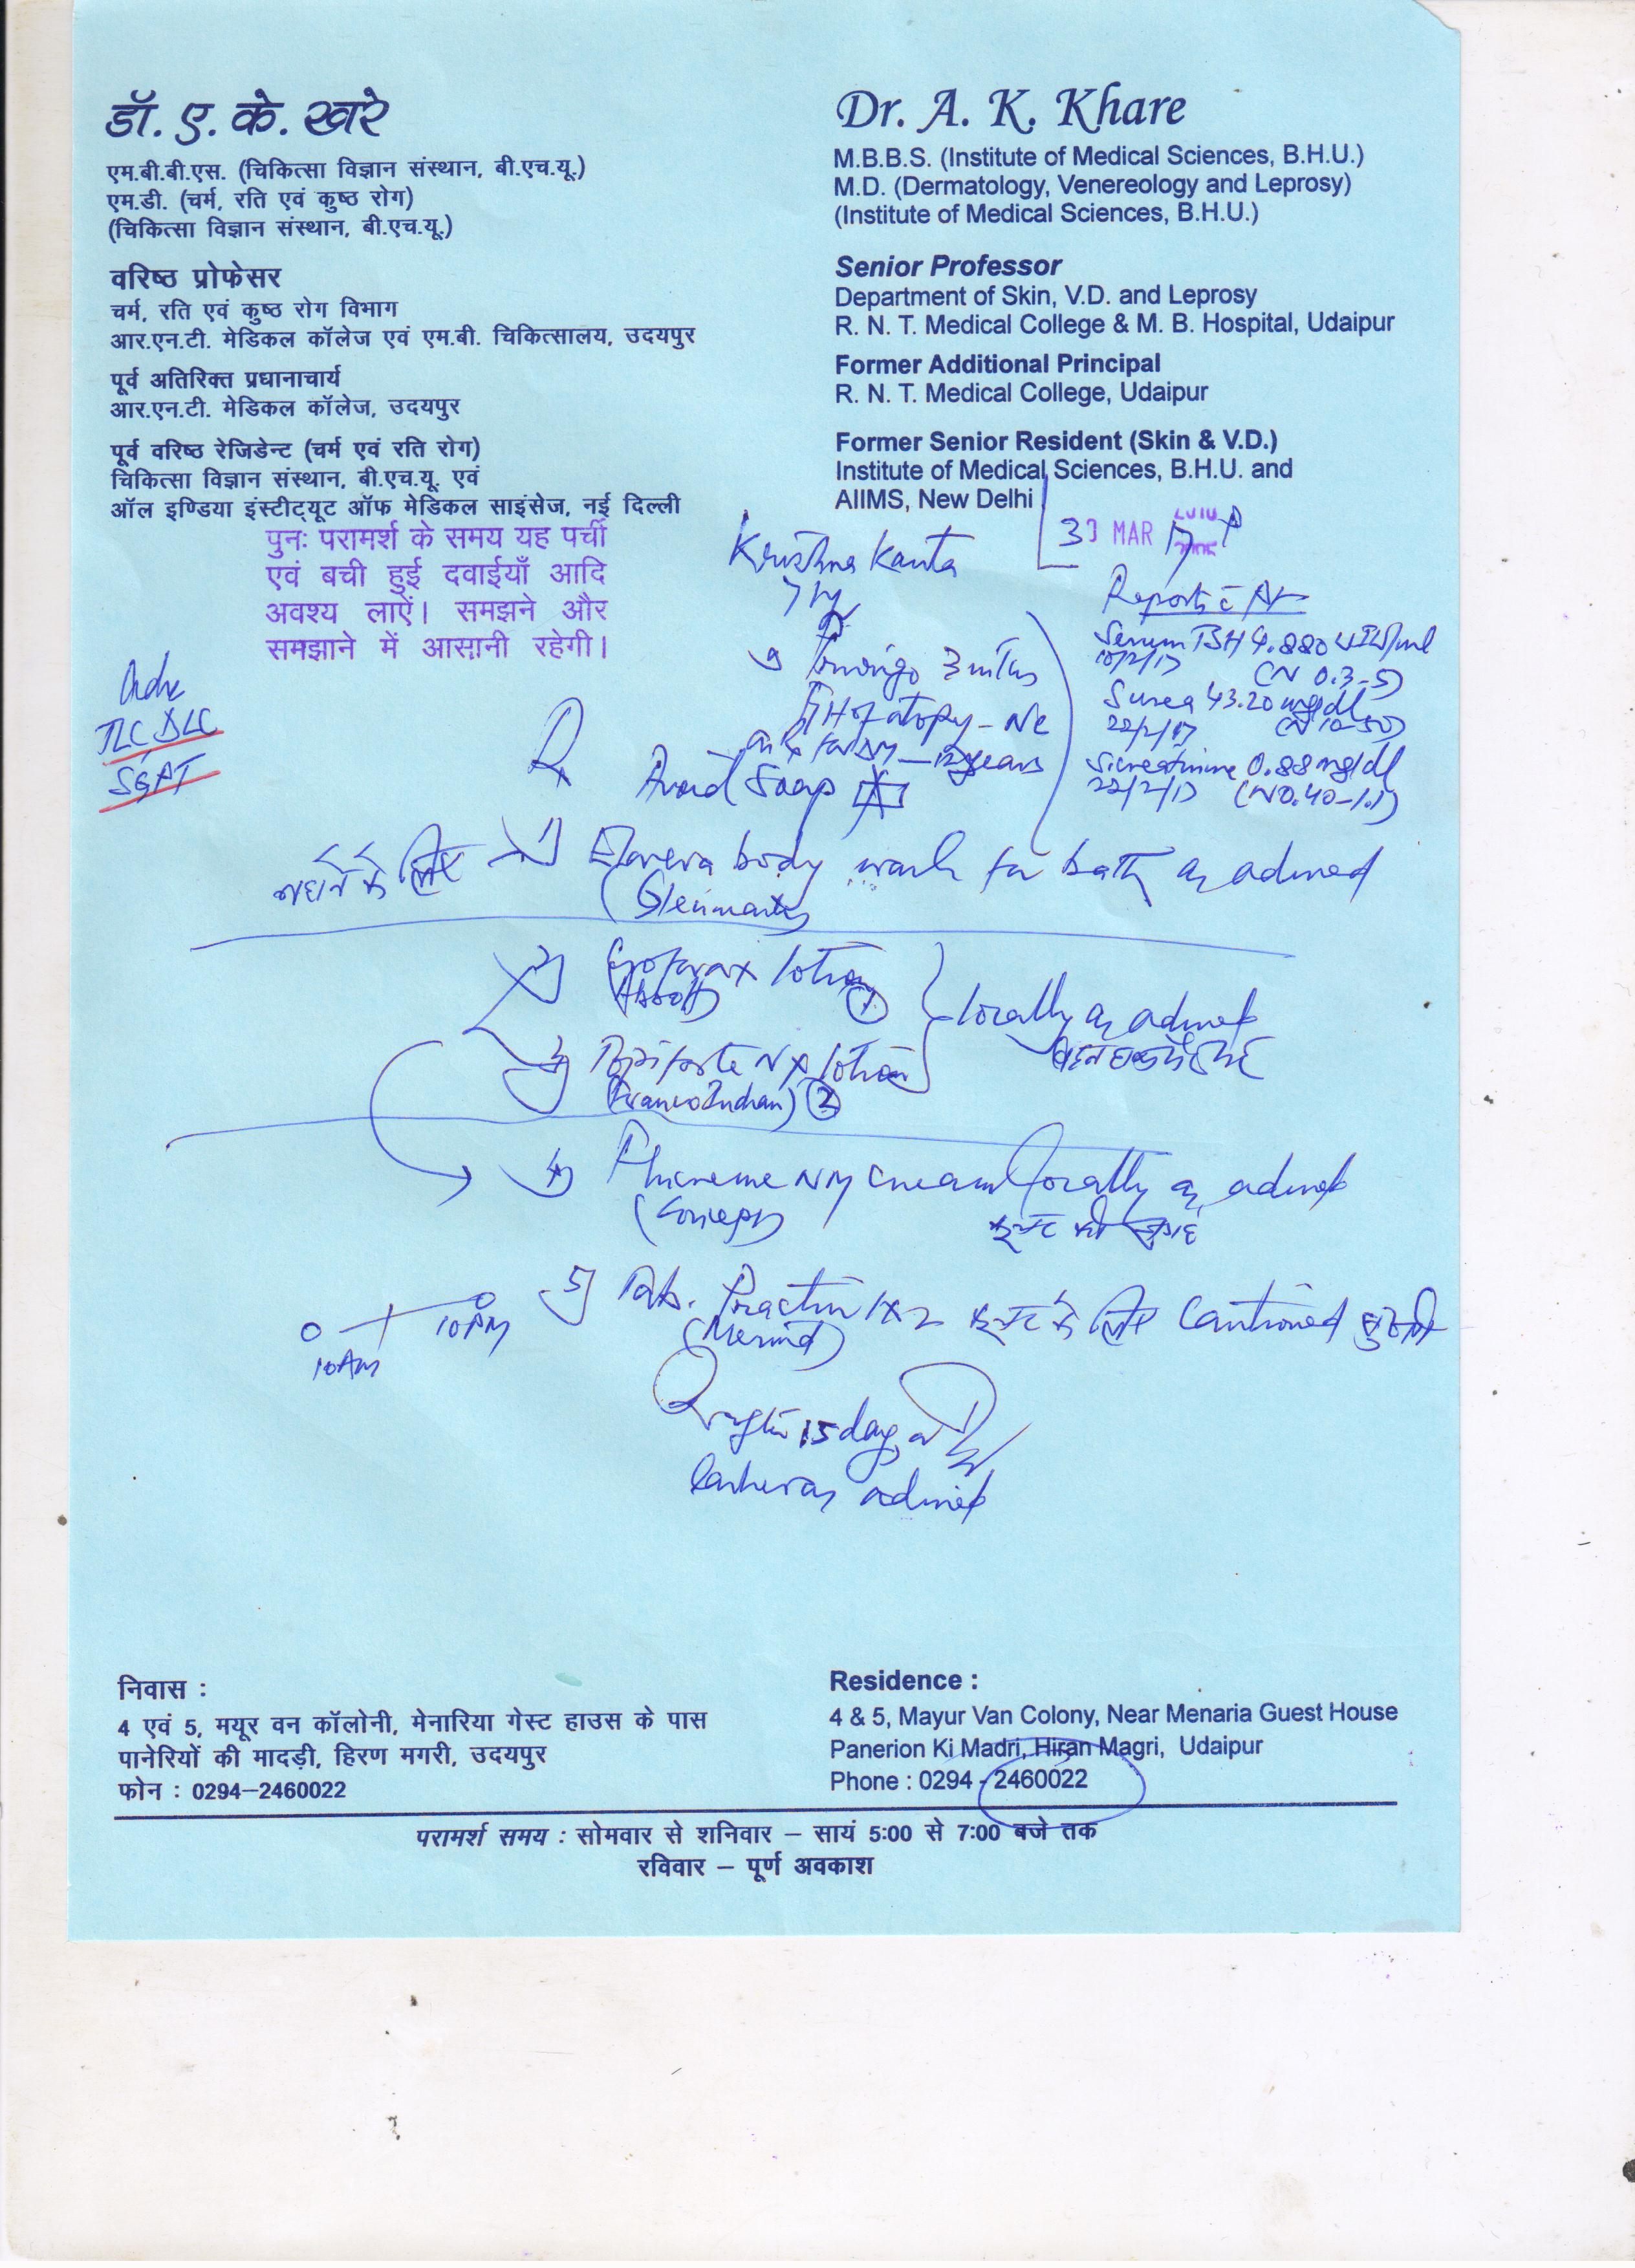 डॉ. ए. के. खरे
एम.बी.बी.एस. (चिकित्सा विज्ञान संस्थान, बी.एच.यू.)
एम.डी. (चर्म, रति एवं कुष्ठ रोग)
(चिकित्सा विज्ञान संस्थान, बी.एच.यू.)
वरिष्ठ प्रोफेसर
चर्म, रति एवं कुष्ठ रोग विभाग
आर.एन.टी. मेडिकल कॉलेज एवं एम.बी. चिकित्सालय, उदयपुर
पूर्व अतिरिक्त प्रधानाचार्य
आर.एन.टी. मेडिकल कॉलेज, उदयपुर
पूर्व वरिष्ठ रेजिडेन्ट (चर्म एवं रति रोग)
चिकित्सा विज्ञान संस्थान, बी.एच.यू. एवं
ऑल इण्डिया इंस्टीट्यूट ऑफ मेडिकल साइंसेज, नई दिल्ली
Dr. A. K. Khare
M.B.B.S. (Institute of Medical Sciences, B.H.U.)
M.D. (Dermatology, Venereology and Leprosy)
(Institute of Medical Sciences, B.H.U.)
Senior Professor
Department of Skin, V.D. and Leprosy
R. N. T. Medical College & M. B. Hospital, Udaipur
Former Additional Principal
R. N. T. Medical College, Udaipur
Former Senior Resident (Skin & V.D.)
Institute of Medical Sciences, B.H.U. and
AIIMS, New Delhi
पुनः परामर्श के समय यह पर्ची
एवं बची हुई दवाईयाँ आदि
अवश्य लाऐं। समझने और
समझाने में आसानी रहेगी।
MAR
Krishna Kanta
Reports
Serum TSH 4.880 uIU/ml
(N 0.3-5)
S urea 43.20 mg/dl
22/2/17 (N 10-50)
S. creatinine 0.88 mg/dl
22/2/17 (N 0.40-1.1)
3 mths
H/o atopy - Ve
12 years
TLC, DLC
SGPT
Rx
Avoid Soap
नहाने के लिए 1) body wash for bath as advised
(Glenmark)
2) lotion
(Abbott) 1
locally as advised
3) lotion
(Franco Indian) 2
4) cream locally as advised
5) Tab. Practin 1x2 के लिए Cautioned
(Merind)
10 AM
10 PM
after 15 days or
earlier as advised
निवास :
4 एवं 5, मयूर वन कॉलोनी, मेनारिया गेस्ट हाउस के पास
पानेरियों की मादड़ी, हिरण मगरी, उदयपुर
फोन : 0294-2460022
Residence :
4 & 5, Mayur Van Colony, Near Menaria Guest House
Panerion Ki Madri, Hiran Magri, Udaipur
Phone : 0294 - 2460022
परामर्श समय : सोमवार से शनिवार – सायं 5:00 से 7:00 बजे तक
रविवार – पूर्ण अवकाश